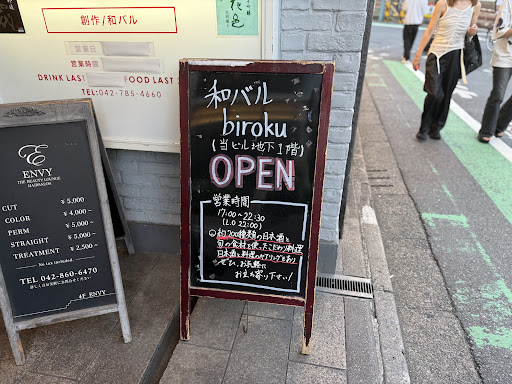 創作/和バル
営業日
営業時間
DRINK LAST
FOOD LAST
TEL:042-785-4660
和バル
biroku
(当ビル地下1階)
OPEN
営業時間
17:00〜22:30
(L.O 22:00)
約200種類の日本酒と
旬の食材を使ったこだわり料理
日本酒と料理のペアリングもあり
ぜひ、お気軽に
お立ち寄り下さい!
ENVY
THE BEAUTY LOUNGE
HAIR&SALON
CUT ¥5,000
COLOR ¥4,000~
PERM ¥5,000~
STRAIGHT ¥5,000~
TREATMENT ¥2,500~
No tax included.
TEL 042-860-6470
4F ENVY